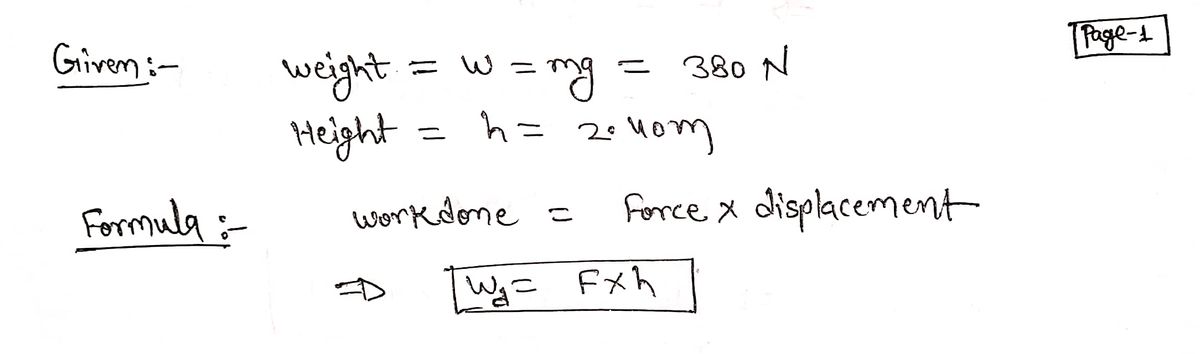 Page-1
Given :-
weight = W = mg = 380 N
Height = h = 2.40m
Formula :-
workdone = Force x displacement
⇒ Wd = F×h